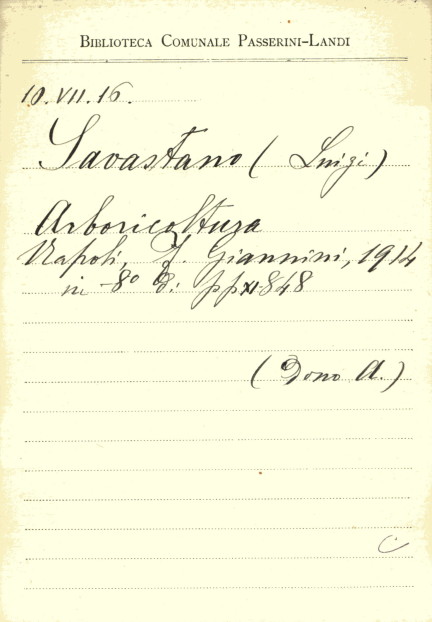 BIBLIOTECA COMUNALE PASSERINI-LANDI
10.VII.16.
Savastano (Luigi)
Arboricoltura
Napoli, F. Giannini, 1914
in -8° di pp XI-848
(Dono A.)
C